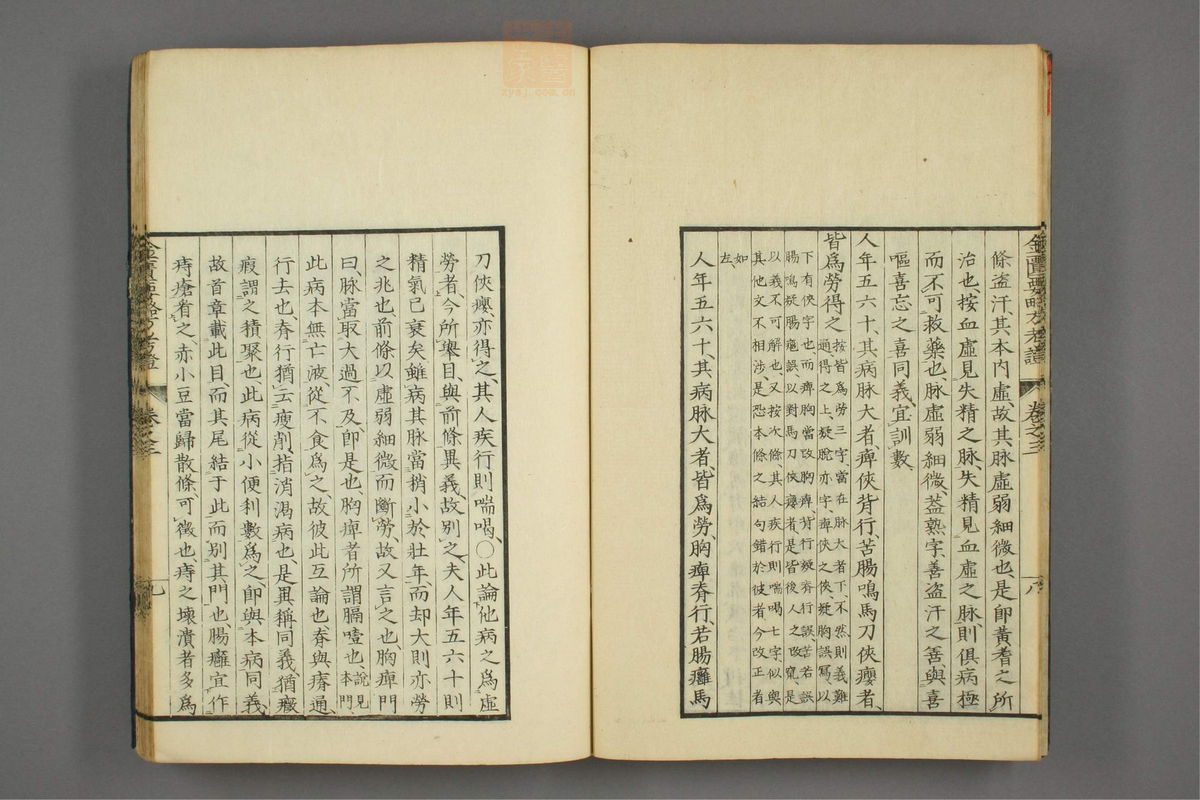 條盗汗、其本内虛故、其脉虛弱細微也、是卽黃耆之所
治也、按血虛見失精之脉、失精見血虛之脉、則俱病極
而不可救藥也、脉虛弱細微、益熟字、善盗汗之善、與喜
嘔喜忘之喜同義、宜訓數
人年五六十、其病脉大者、痺俠背行、苦腸鳴、馬刀俠癭者、
皆爲勞得之、按皆爲勞三字、當在脉大者下、不然則義難
通得之上、疑脫亦字、痺俠之俠、疑胸誤寫、以
下有俠字也、而痺胸當改胸痺、背行疑脊行誤、苦若誤
腸鳴疑腸癰誤、以對馬刀俠癭者、是皆後人之改竄、是
以義不可解也、又按次條、其人疾行則喘喝七字、似與
其他文不相涉、是恐本條之結句錯於彼者、今改正者
如左、
人年五六十、其病脉大者、皆爲勞、胸痺脊行、若腸癰馬
金匱要略方考證
卷之三
八
刀俠癭、亦得之、其人疾行則喘喝、〇此論他病之爲虛
勞者、今所舉目、與前條異義、故別之、夫人年五六十則
精氣已衰矣、雖病其脉當稍小於壯年、而却大則亦勞
之兆也、前條以虛弱細微而斷勞、故又言之也、胸痺門
曰、脉當取太過不及卽是也、胸痺者所謂膈噎也、說見本門
此病本無亡液、從不食爲之、故彼此互論也、脊與瘠通
行去也、脊行猶云瘦削、指消渴病也、是異稱同義、猶癥
瘕謂之積聚也、此病從小便利數爲之、卽與本病同義
故首章載此目、而其尾結于此而別其門也、腸癰宜作
痔瘡看之、赤小豆當歸散條、可徵也、痔之壞潰者多爲
金匱要略方考證
卷之三
九
zysj.com.cn